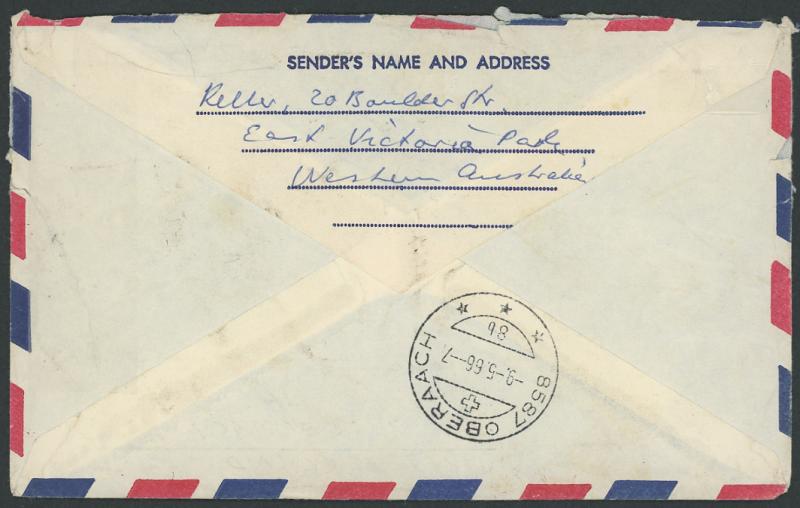 SENDER'S NAME AND ADDRESS
Keller, 20 Boulder Str.
East Victoria Park
Western Australia
8b
-9.5.66--7
8587 OBERAACH